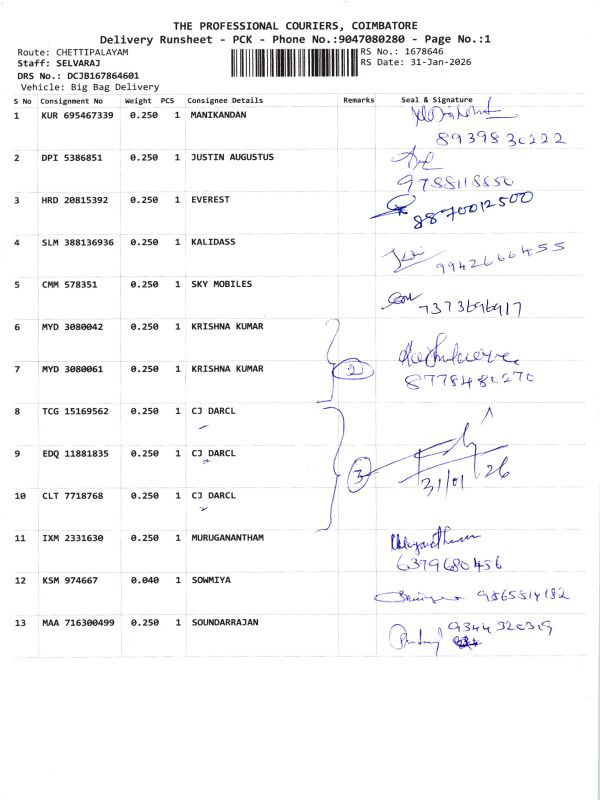 THE PROFESSIONAL COURIERS, COIMBATORE
Delivery Runsheet - PCK - Phone No.:9047080280 - Page No.:1
Route: CHETTIPALAYAM RS No.: 1678646
Staff: SELVARAJ RS Date: 31-Jan-2026
DRS No.: DCJB167864601
Vehicle: Big Bag Delivery
S No Consignment No Weight PCS Consignee Details Remarks Seal & Signature
1 KUR 695467339 0.250 1 MANIKANDAN
8939830222
2 DPI 5386851 0.250 1 JUSTIN AUGUSTUS
9788118850
3 HRD 20815392 0.250 1 EVEREST
8870012500
4 SLM 388136936 0.250 1 KALIDASS
9942666455
5 CMM 578351 0.250 1 SKY MOBILES
7373696917
6 MYD 3080042 0.250 1 KRISHNA KUMAR
7 MYD 3080061 0.250 1 KRISHNA KUMAR 2
8778480270
8 TCG 15169562 0.250 1 CJ DARCL
9 EDQ 11881835 0.250 1 CJ DARCL 3
31/01/26
10 CLT 7718768 0.250 1 CJ DARCL
11 IXM 2331630 0.250 1 MURUGANANTHAM
6379680456
12 KSM 974667 0.040 1 SOWMIYA
9865514182
13 MAA 716300499 0.250 1 SOUNDARRAJAN 9344320319